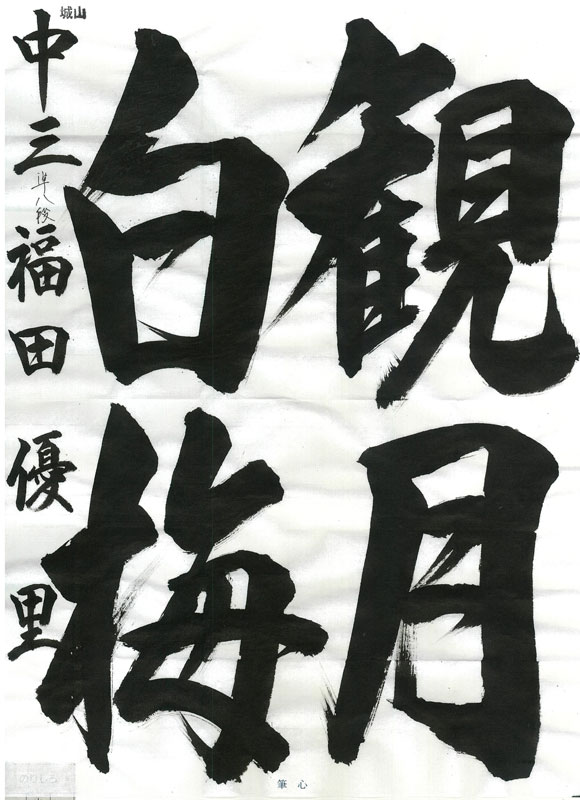 観月
白梅
城山
中三
準八級
福田
優里
のりしろ
筆心